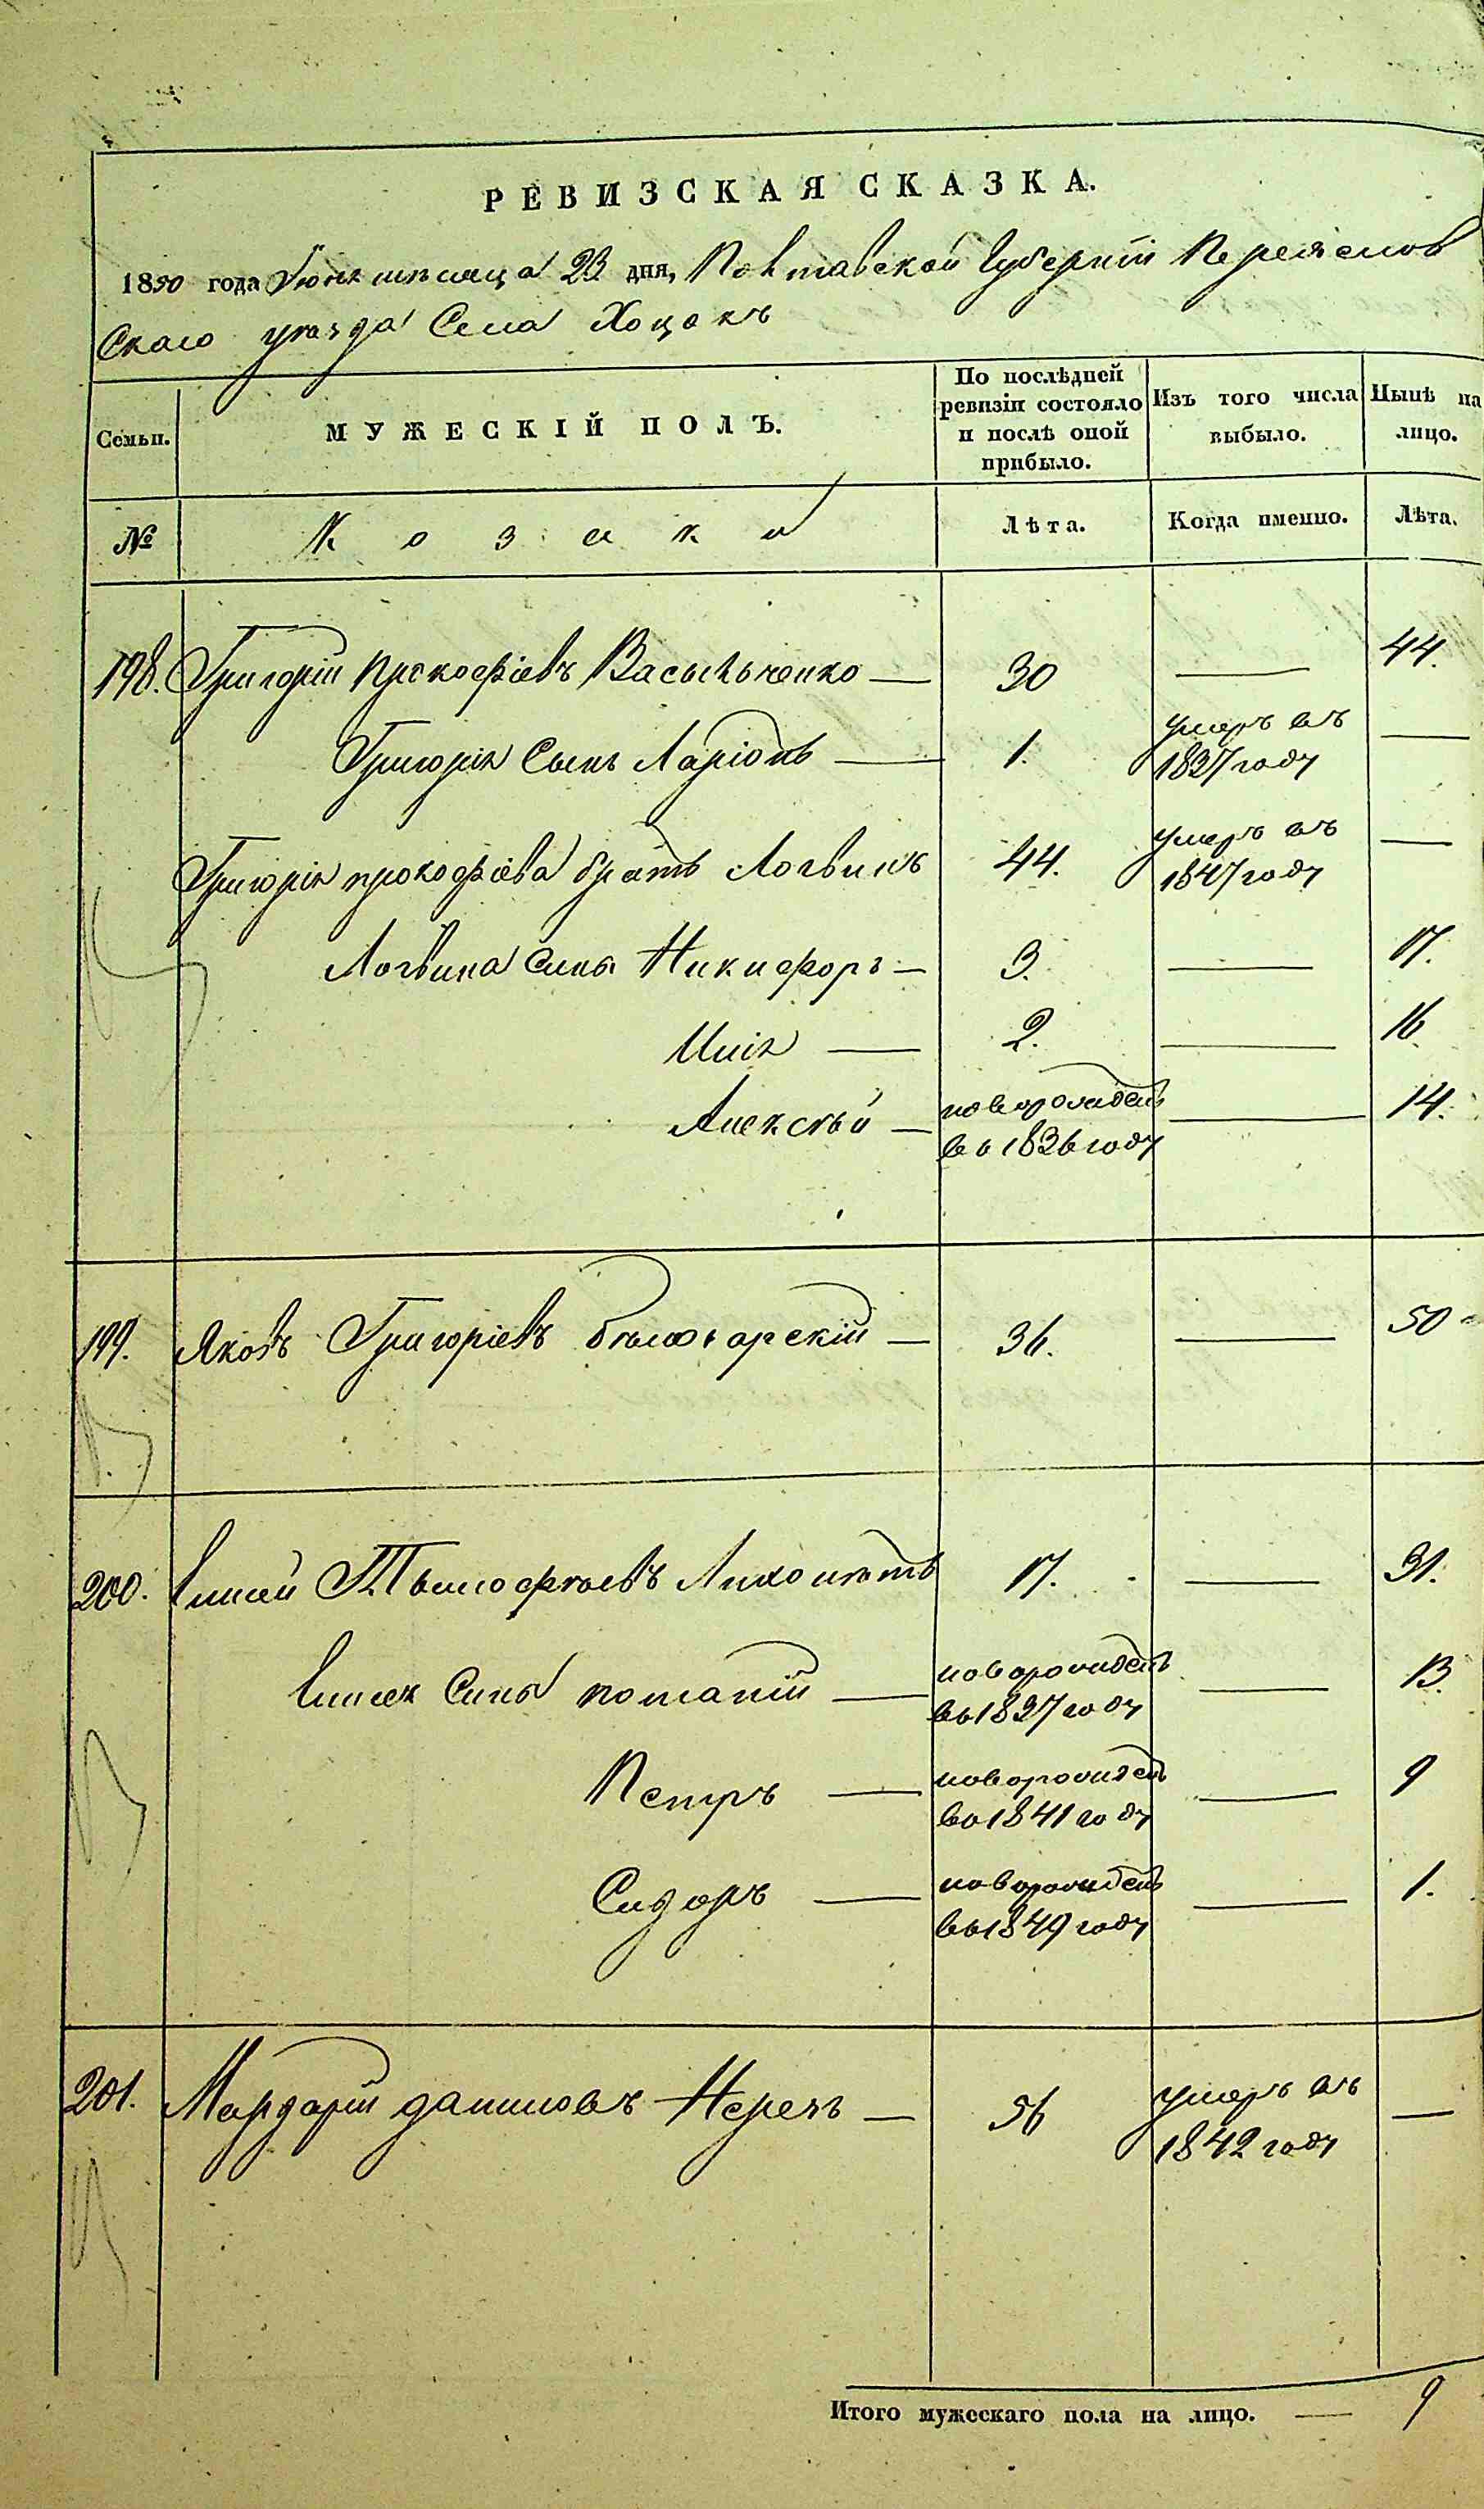 РЕВИЗСКАЯ СКАЗКА.
1850 года Іюня мѣсяца 23 дня, Полтавской Губерніи Переяслов
Скаго уѣзда Села Хоцокъ
Семьи.
МУЖЕСКІЙ ПОЛЪ.
По послѣдней ревизіи состояло и послѣ оной прибыло.
Изъ того числа выбыло.
Нынѣ на лицо.
№
Козаки
Лѣта.
Когда именно.
Лѣта.
198. Григорій Прокофіевъ Васильченко — 30 — 44.
Григорія Сынъ Ларіонъ — 1. умеръ въ 1837 году —
Григорія прокофіева братъ Логвинъ 44. умеръ въ 1847 году —
Логвина Сыны Никифоръ — 3. — 17.
Илія — 2. — 16
Алексѣй — новорожденъ въ 1836 году — 14.
199. Яковъ Григоріевъ — 36. — 50
200. Елисей Тымофѣевъ 17. — 31.
Елисея Сыны потапій — новорожденъ въ 1837 году — 13.
Петръ — новорожденъ въ 1841 году — 9
Сидоръ — новорожденъ въ 1849 году — 1.
201. Мардарій даниловъ — 56 умеръ въ 1842 году —
Итого мужескаго пола на лицо. — 9